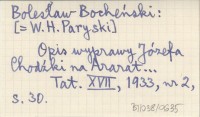 Bolesław Bocheński:
[= W. H. Paryski]
Opis wyprawy Józefa
Chodźki na Ararat...
Tat. XVII, 1933, nr 2,
s. 30.